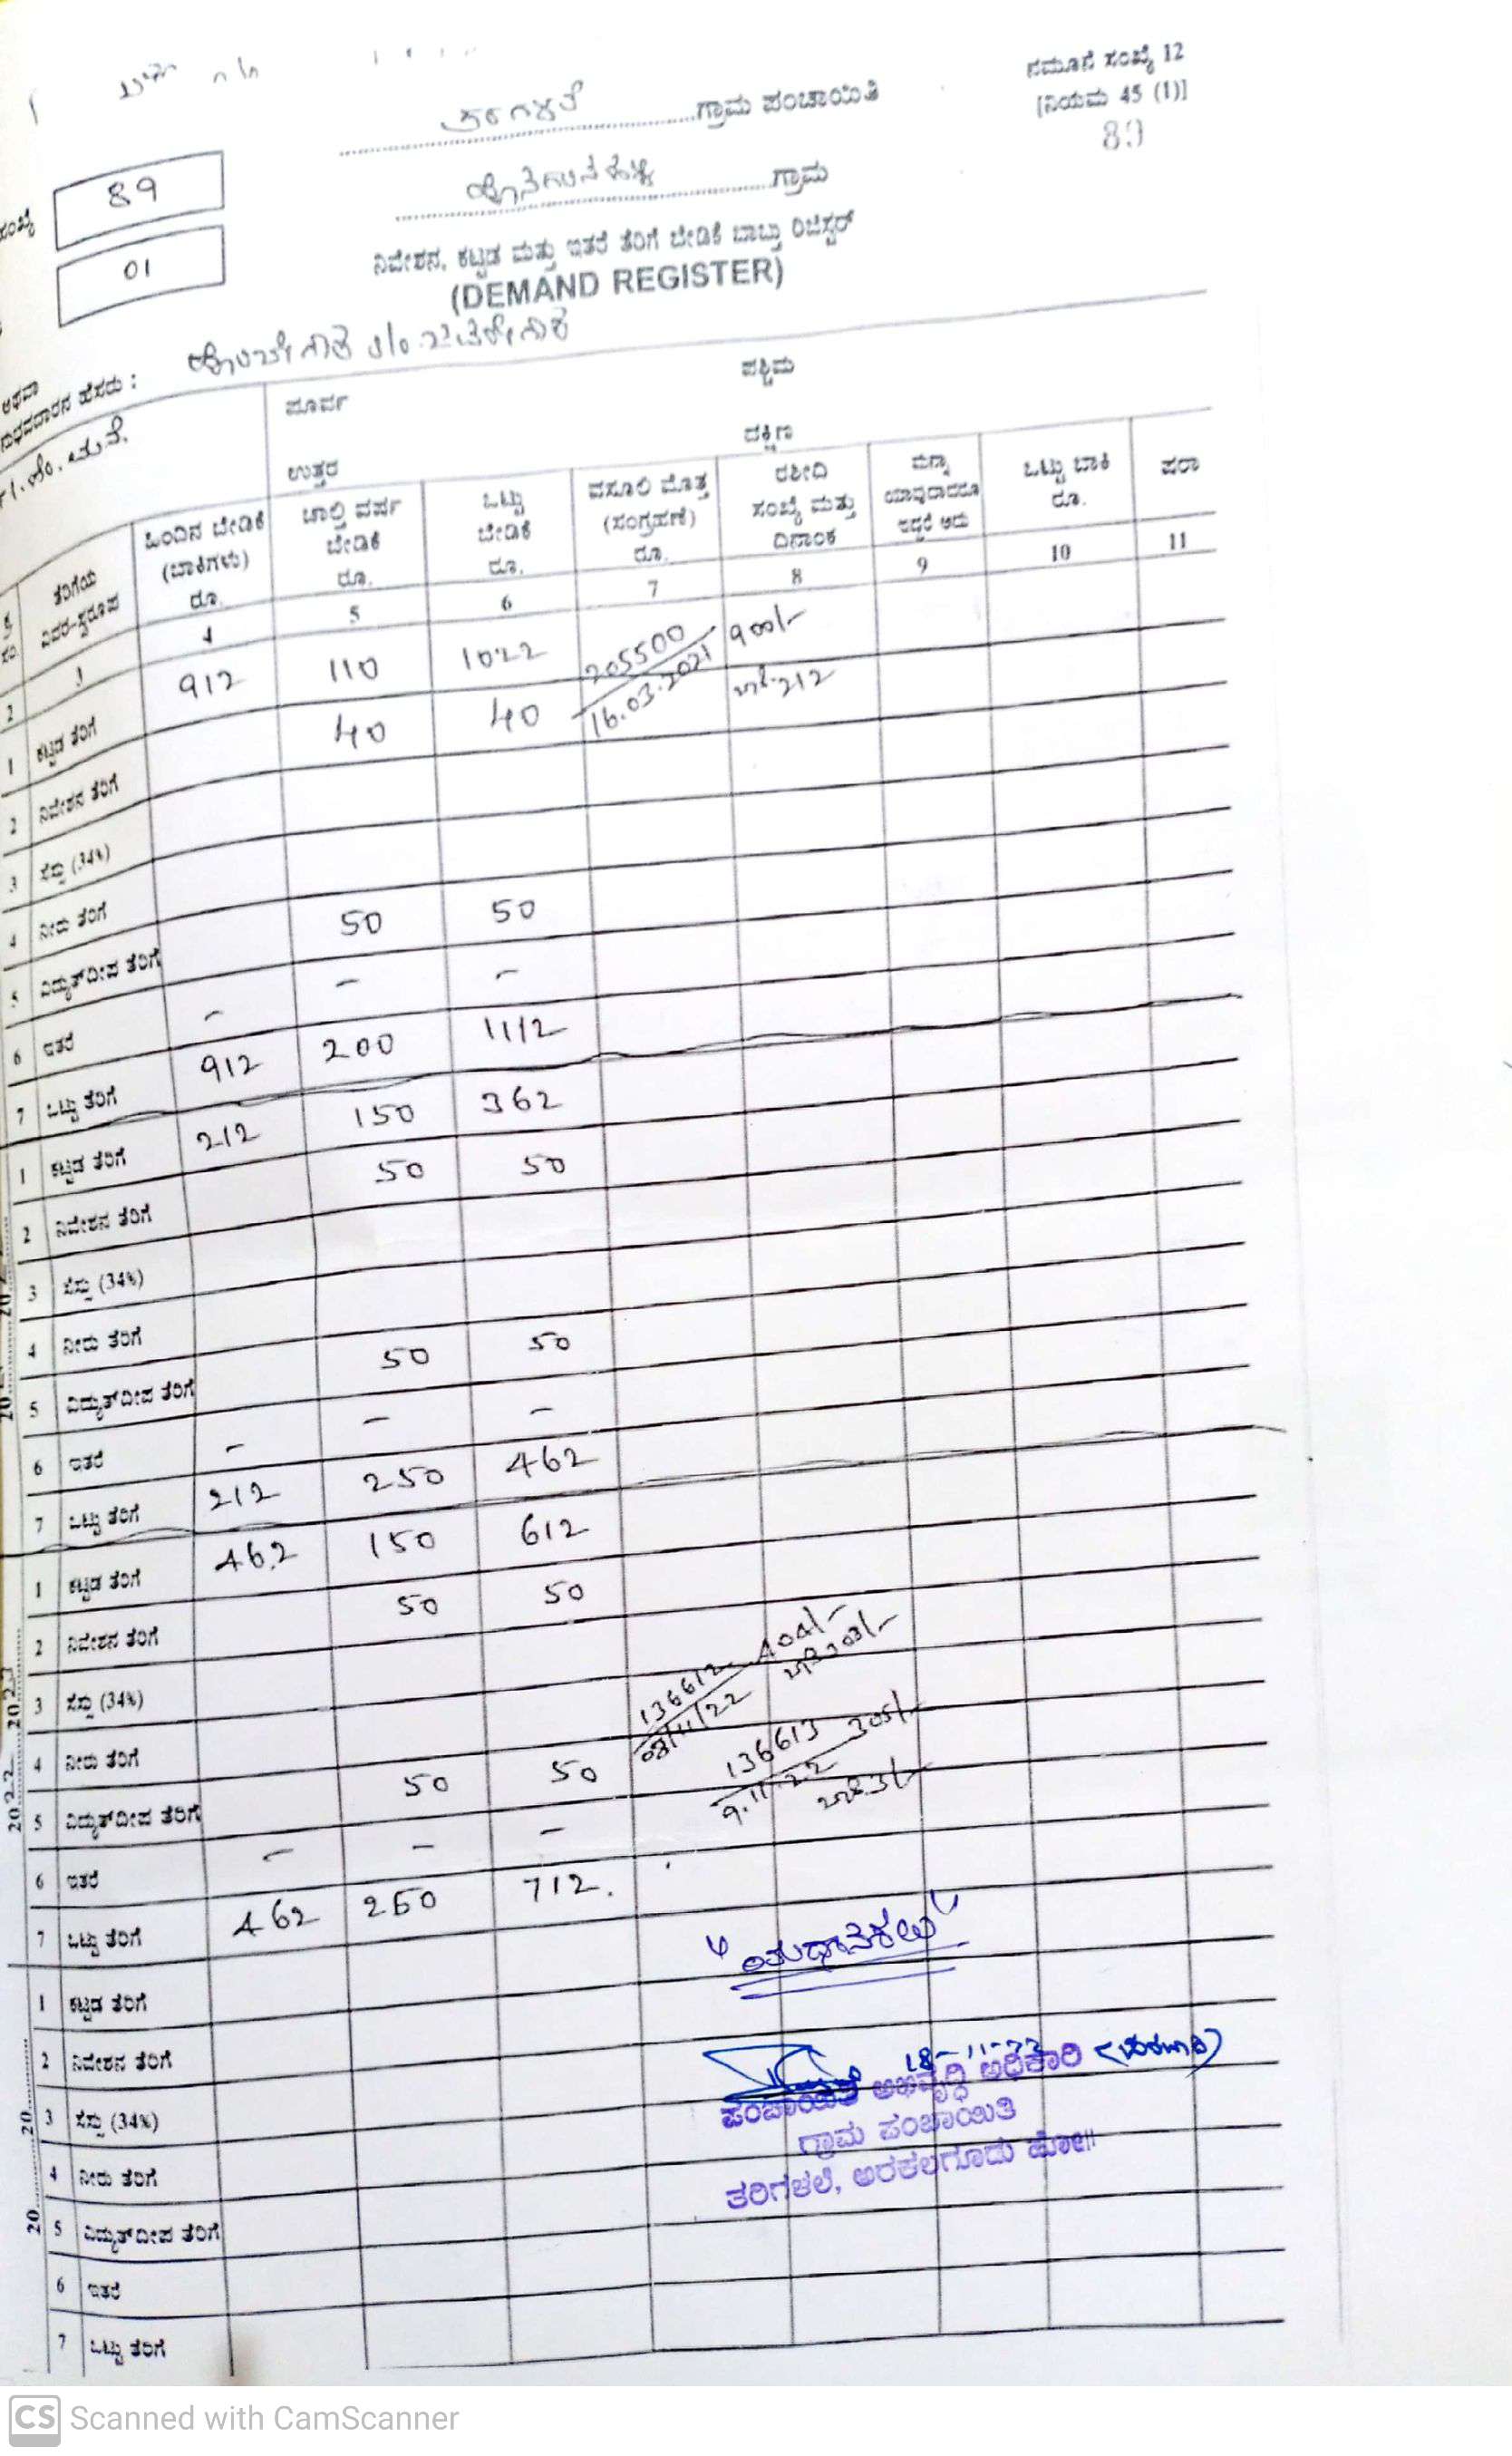 ನಮೂನೆ ಸಂಖ್ಯೆ 12
[ನಿಯಮ 45 (1)]
89
ಗ್ರಾಮ ಪಂಚಾಯಿತಿ
ಗ್ರಾಮ
ಸಂಖ್ಯೆ 89
01
ನಿವೇಶನ, ಕಟ್ಟಡ ಮತ್ತು ಇತರೆ ತೆರಿಗೆ ಬೇಡಿಕೆ ಬಾಬ್ತು ರಿಜಿಸ್ಟರ್
(DEMAND REGISTER)
ಅಥವಾ
ಹೆಸರು :
ಪೂರ್ವ ಪಶ್ಚಿಮ
ಉತ್ತರ ದಕ್ಷಿಣ
ಕ್ರ. ಸಂ. ತೆರಿಗೆಯ ವಿವರ-ಸ್ವರೂಪ ಹಿಂದಿನ ಬೇಡಿಕೆ (ಬಾಕಿಗಳು) ರೂ. ಚಾಲ್ತಿ ವರ್ಷ ಬೇಡಿಕೆ ರೂ. ಒಟ್ಟು ಬೇಡಿಕೆ ರೂ. ವಸೂಲಿ ಮೊತ್ತ (ಸಂಗ್ರಹಣೆ) ರೂ. ರಶೀದಿ ಸಂಖ್ಯೆ ಮತ್ತು ದಿನಾಂಕ ಮನ್ನಾ ಯಾವುದಾದರೂ ಇದ್ದರೆ ಅದು ಒಟ್ಟು ಬಾಕಿ ರೂ. ಷರಾ
2 3 4 5 6 7 8 9 10 11
1 ಕಟ್ಟಡ ತೆರಿಗೆ 912 110 1022 205500 900/-
2 ನಿವೇಶನ ತೆರಿಗೆ 40 40 16.03.2021 212
3 ಸೆಸ್ಸು (34%)
4 ನೀರು ತೆರಿಗೆ
5 ವಿದ್ಯುತ್‌ದೀಪ ತೆರಿಗೆ 50 50
6 ಇತರೆ - - -
7 ಒಟ್ಟು ತೆರಿಗೆ 912 200 1112
1 ಕಟ್ಟಡ ತೆರಿಗೆ 212 150 362
2 ನಿವೇಶನ ತೆರಿಗೆ 50 50
3 ಸೆಸ್ಸು (34%)
4 ನೀರು ತೆರಿಗೆ
5 ವಿದ್ಯುತ್‌ದೀಪ ತೆರಿಗೆ 50 50
6 ಇತರೆ - - -
7 ಒಟ್ಟು ತೆರಿಗೆ 212 250 462
2022 2023
1 ಕಟ್ಟಡ ತೆರಿಗೆ 462 150 612
2 ನಿವೇಶನ ತೆರಿಗೆ 50 50
3 ಸೆಸ್ಸು (34%) 136612 404/-
4 ನೀರು ತೆರಿಗೆ 08/11/22
5 ವಿದ್ಯುತ್‌ದೀಪ ತೆರಿಗೆ 50 50 136613 305/-
9.11.22
6 ಇತರೆ - - -
7 ಒಟ್ಟು ತೆರಿಗೆ 462 250 712.
20 20
1 ಕಟ್ಟಡ ತೆರಿಗೆ
2 ನಿವೇಶನ ತೆರಿಗೆ
3 ಸೆಸ್ಸು (34%)
4 ನೀರು ತೆರಿಗೆ
5 ವಿದ್ಯುತ್‌ದೀಪ ತೆರಿಗೆ
6 ಇತರೆ
7 ಒಟ್ಟು ತೆರಿಗೆ
ಪಂಚಾಯಿತಿ ಅಭಿವೃದ್ಧಿ ಅಧಿಕಾರಿ
ಗ್ರಾಮ ಪಂಚಾಯಿತಿ
ತರಿಗಳಲೆ, ಅರಕಲಗೂಡು ಹೋ||
CS Scanned with CamScanner